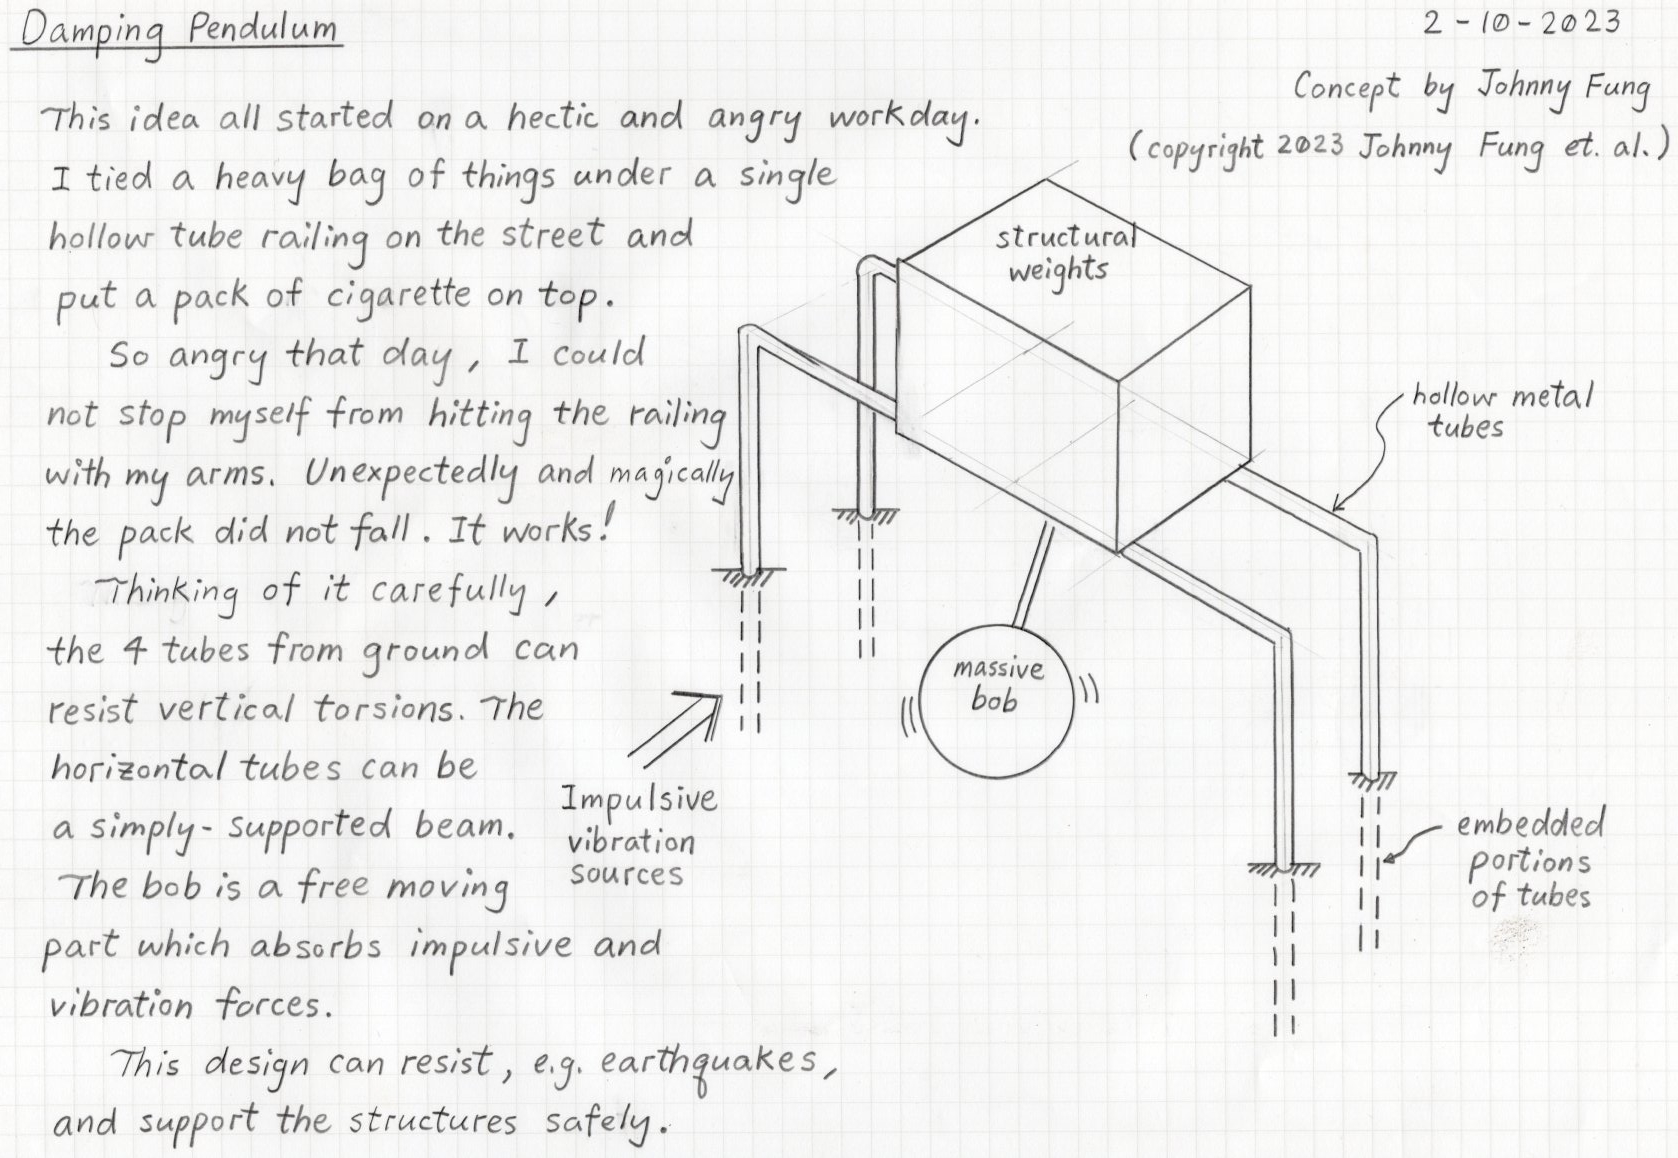 Damping Pendulum
2-10-2023
Concept by Johnny Fung
(copyright 2023 Johnny Fung et. al.)
This idea all started on a hectic and angry workday.
I tied a heavy bag of things under a single
hollow tube railing on the street and
put a pack of cigarette on top.
So angry that day, I could
not stop myself from hitting the railing
with my arms. Unexpectedly and magically
the pack did not fall. It works!
Thinking of it carefully,
the 4 tubes from ground can
resist vertical torsions. The
horizontal tubes can be
a simply-supported beam.
The bob is a free moving
part which absorbs impulsive and
vibration forces.
This design can resist, e.g. earthquakes,
and support the structures safely.
structural
weights
hollow metal
tubes
massive
bob
Impulsive
vibration
sources
embedded
portions
of tubes